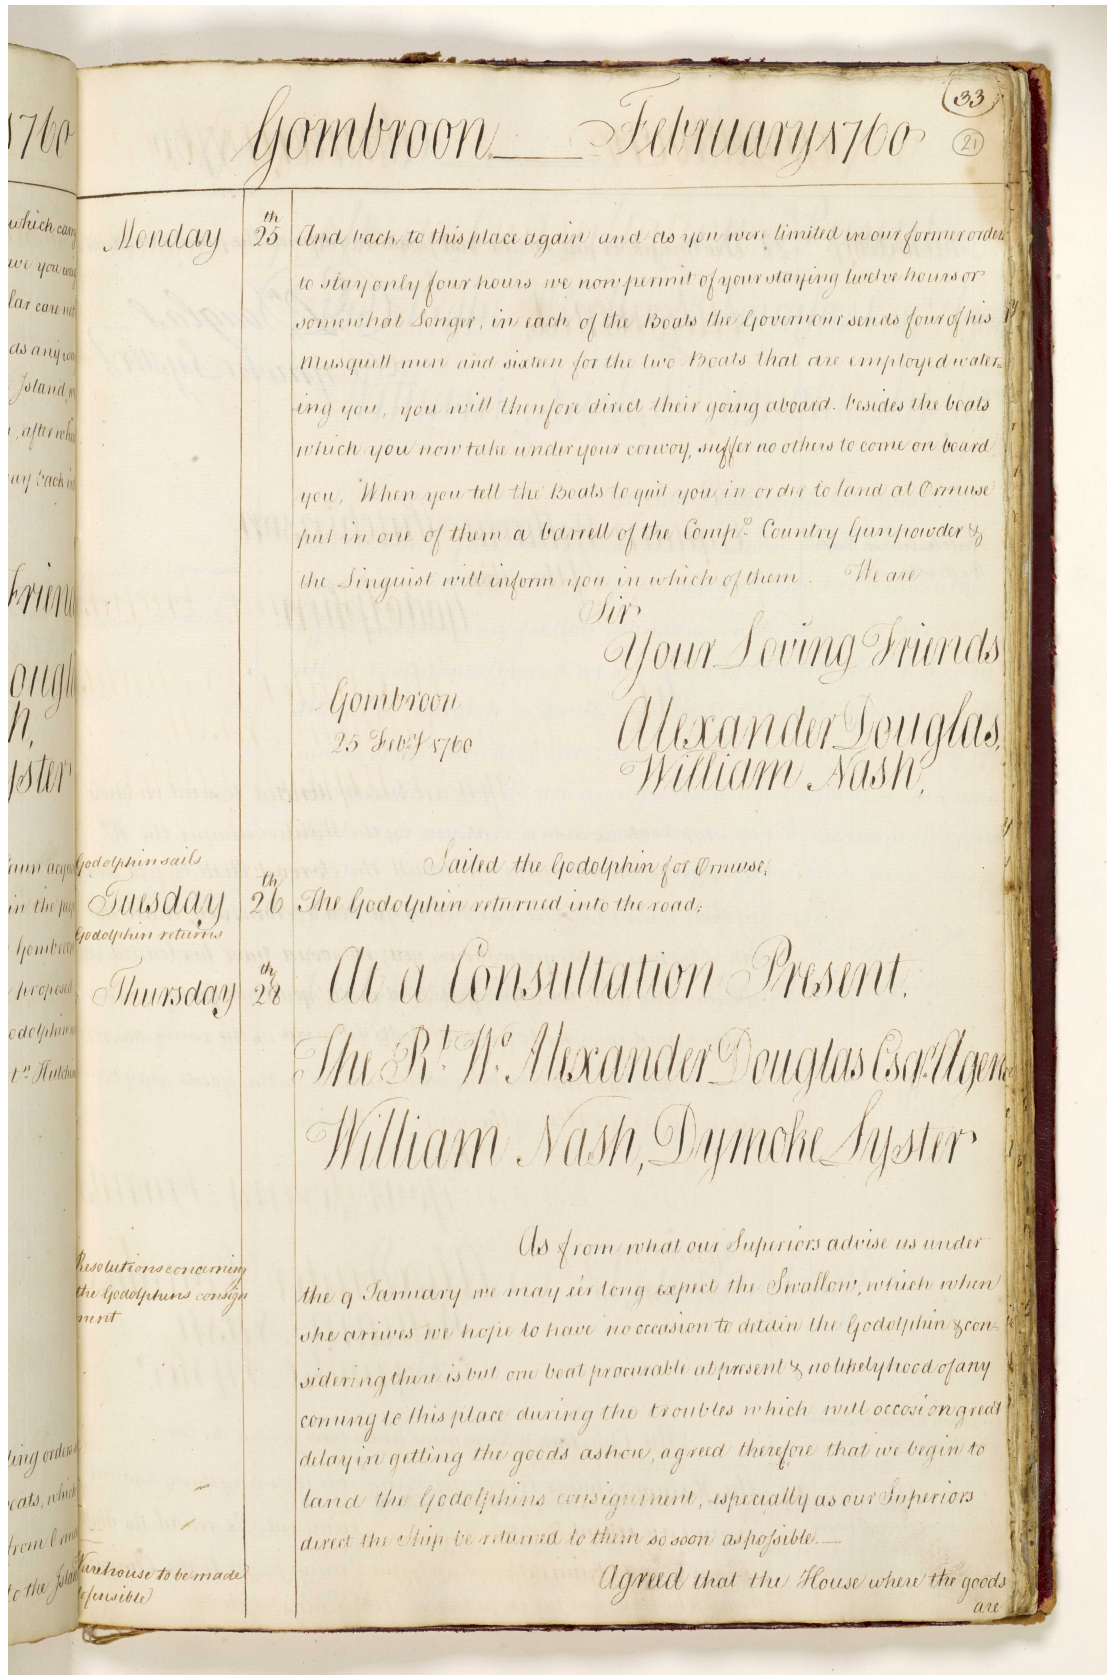 33
21
Gombroon February 1760
Monday 25th And back to this place again and as you were limited in our former orders
to stay only four hours we now permit of your staying twelve hours or
somewhat Longer, in each of the Boats the Governour sends four of his
Musquett men and sixteen for the two Boats that are employed water=
ing you, you will therefore direct their going aboard. besides the boats
which you now take under your convoy, suffer no others to come on board
you, When you tell the Boats to quit you in order to land at Ormuse
put in one of them a barrell of the Compˢ. Country Gunpowder &
the Linguist will inform you in which of them. We are
Sir
Your Loving Friends
Gombroon
25 Febry 1760
Alexander Douglas,
William Nash,
Godolphin sails
Sailed the Godolphin for Ormuse,
Tuesday 26th The Godolphin returned into the road;
Godolphin returns
Thursday 28th At a Consultation Present.
The Rt. Wo. Alexander Douglas Esqr. Agent
William Nash, Dymoke Lyster
As from what our Superiors advise us under
Resolutions concerning
the Godolphins consign
ment
the 9 January we may e'er long expect the Swallow, which when
she arrives we hope to have no occasion to detain the Godolphin & con-
sidering there is but one boat procurable at present & no likelyhood of any
coming to this place during the troubles which will occasion great
delay in getting the goods ashore, agreed therefore that we begin to
land the Godolphins consignment, especially as our Superiors
direct the Ship be returned to them so soon as possible.—
Warehouse to be made
defensible
Agreed that the House where the goods
are